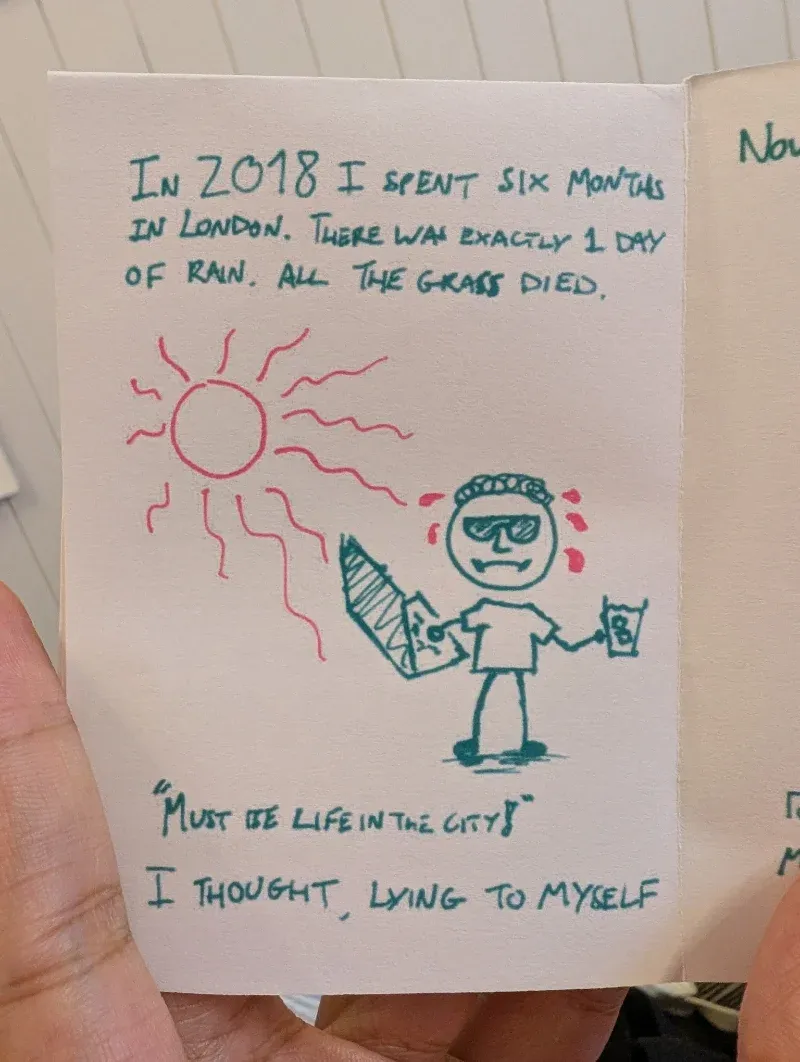 IN 2018 I SPENT SIX MONTHS
IN LONDON. THERE WAS EXACTLY 1 DAY
OF RAIN. ALL THE GRASS DIED.
"MUST BE LIFE IN THE CITY!"
I THOUGHT, LYING TO MYSELF